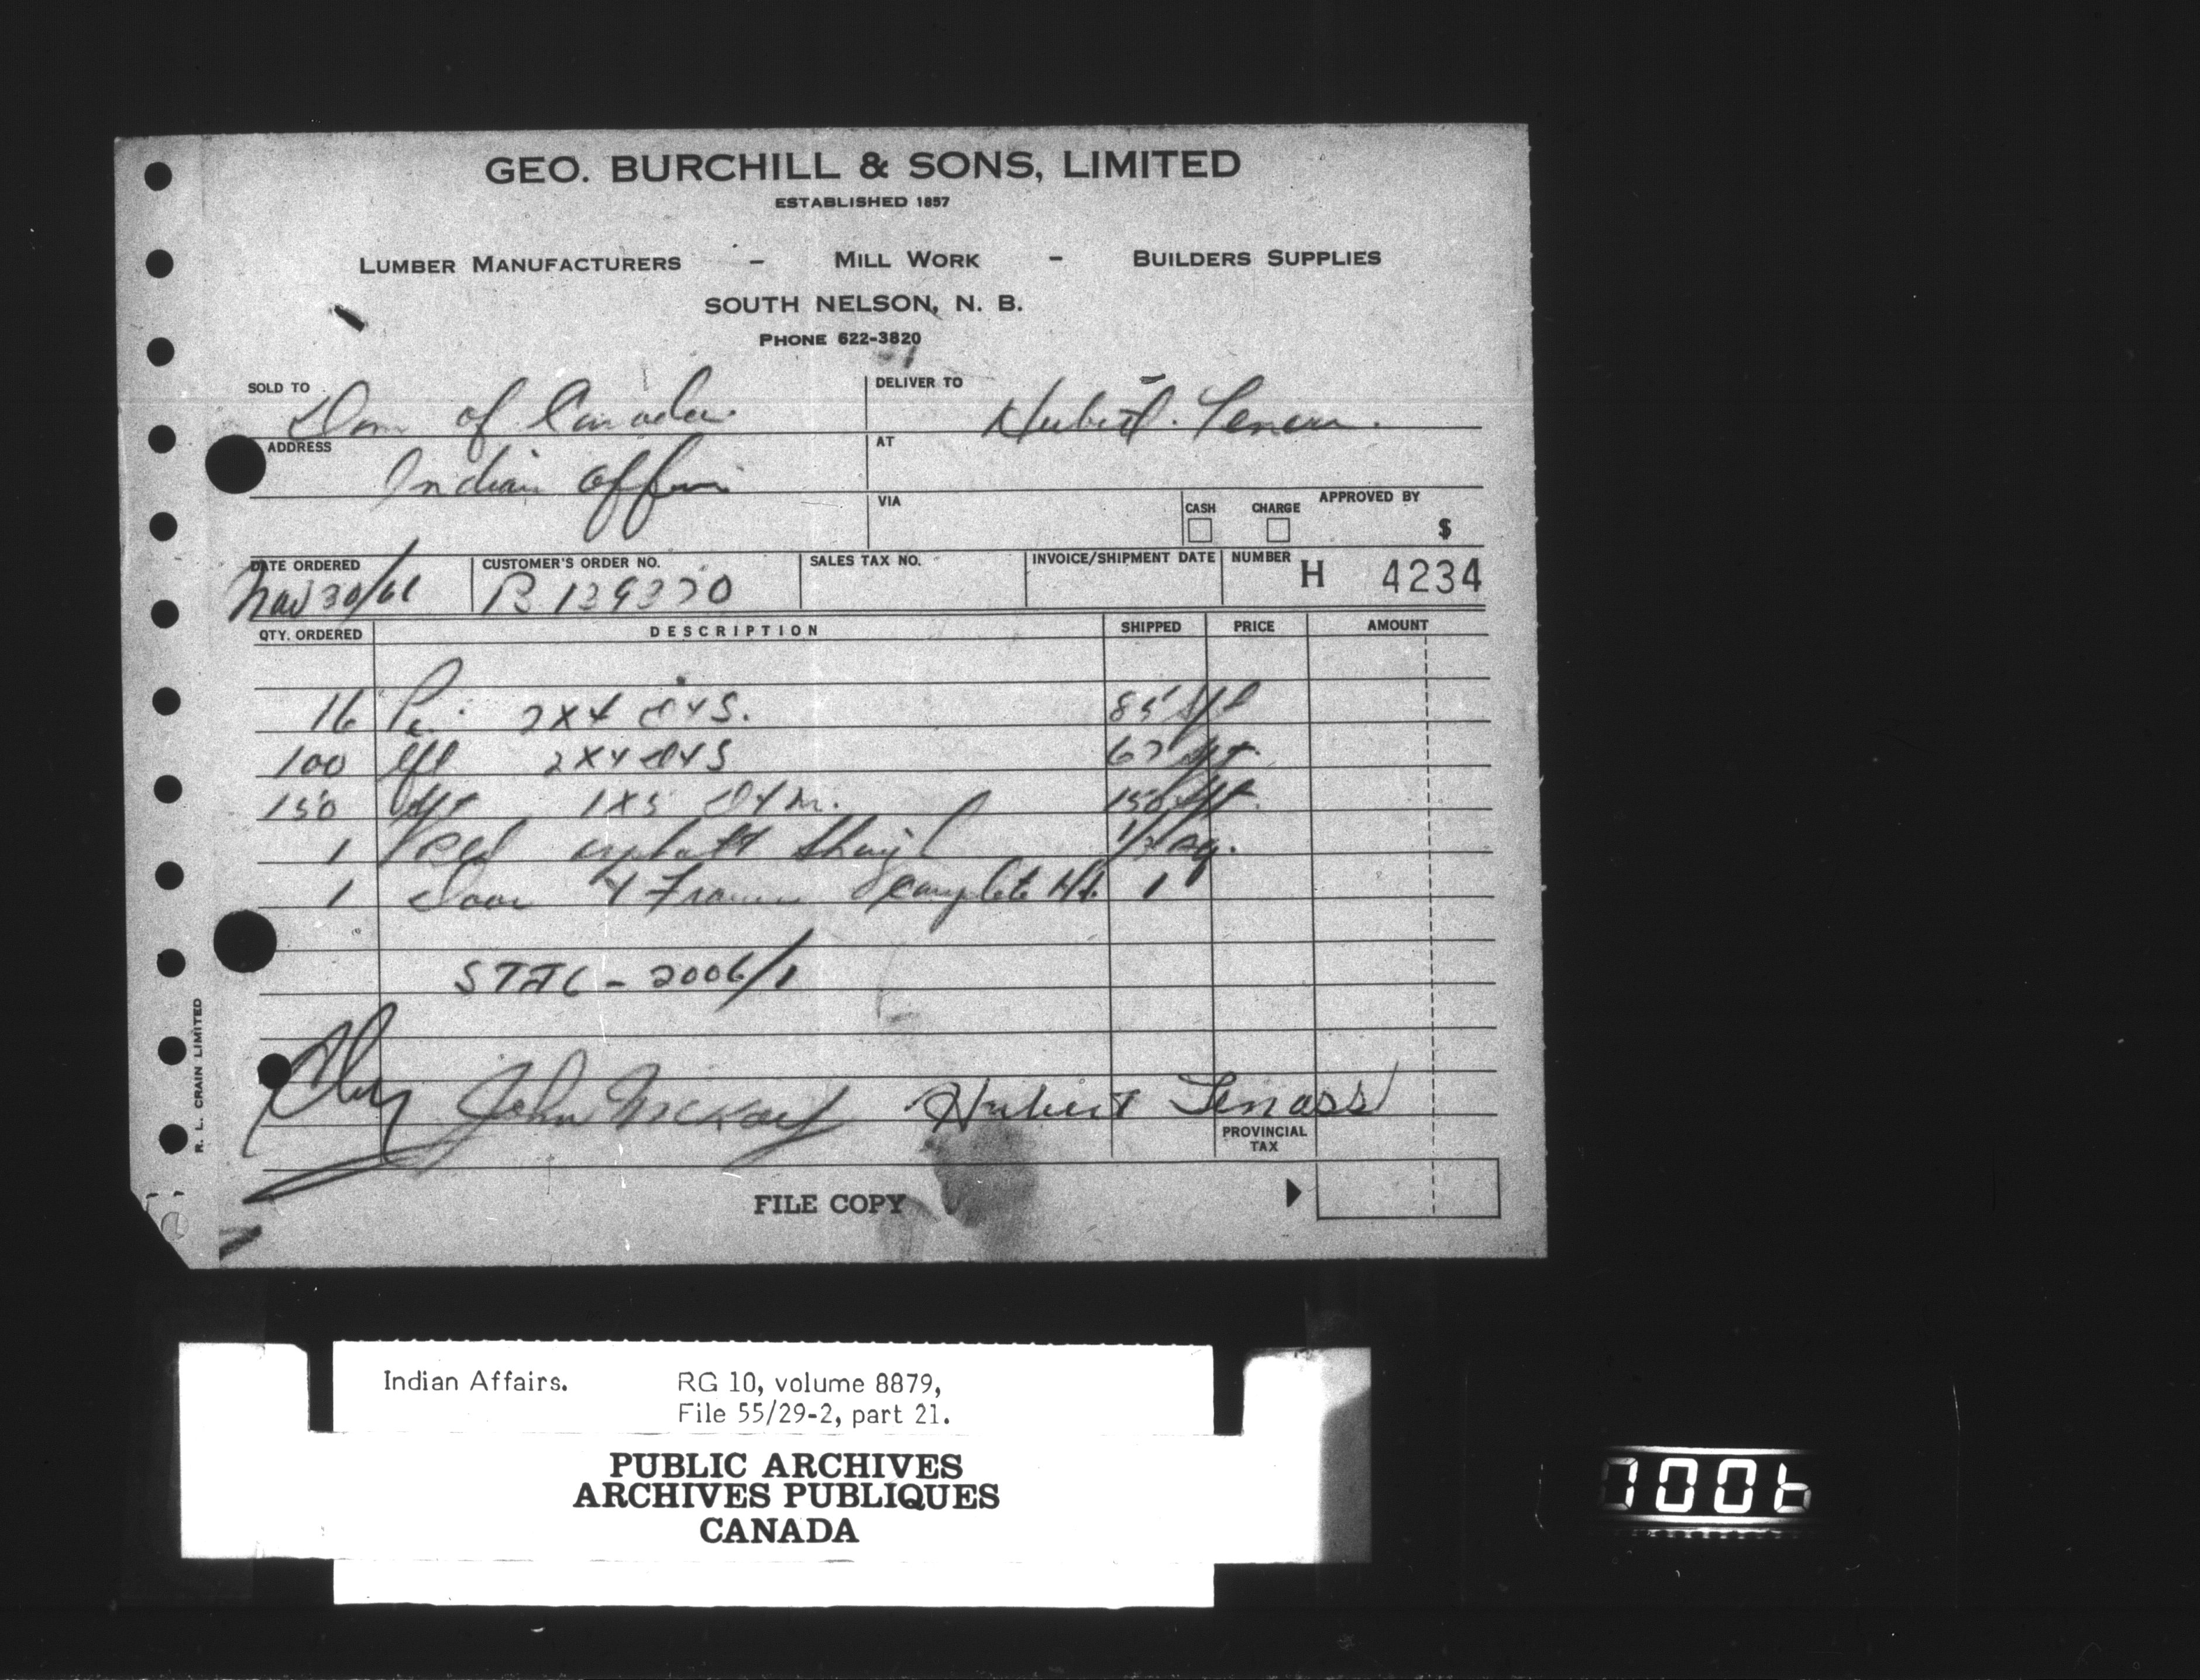 GEO. BURCHILL & SONS, LIMITED
ESTABLISHED 1857
LUMBER MANUFACTURERS - MILL WORK - BUILDERS SUPPLIES
SOUTH NELSON, N. B.
PHONE 622-3820
SOLD TO Dom of Canada DELIVER TO Hubert
ADDRESS Indian AT
VIA CASH CHARGE APPROVED BY $
DATE ORDERED CUSTOMER'S ORDER NO. SALES TAX NO. INVOICE/SHIPMENT DATE NUMBER H 4234
Nov 30/61 B 139370
QTY. ORDERED DESCRIPTION SHIPPED PRICE AMOUNT
16 2X4 85
100 2X4 67
150 1X5 150
1 asphalt 1/2 sq.
1 Door & Frame complete 1
2006/1
John McKay Hubert Tenass
PROVINCIAL TAX
FILE COPY
R. L. CRAIN LIMITED
Indian Affairs. RG 10, volume 8879,
File 55/29-2, part 21.
PUBLIC ARCHIVES
ARCHIVES PUBLIQUES
CANADA